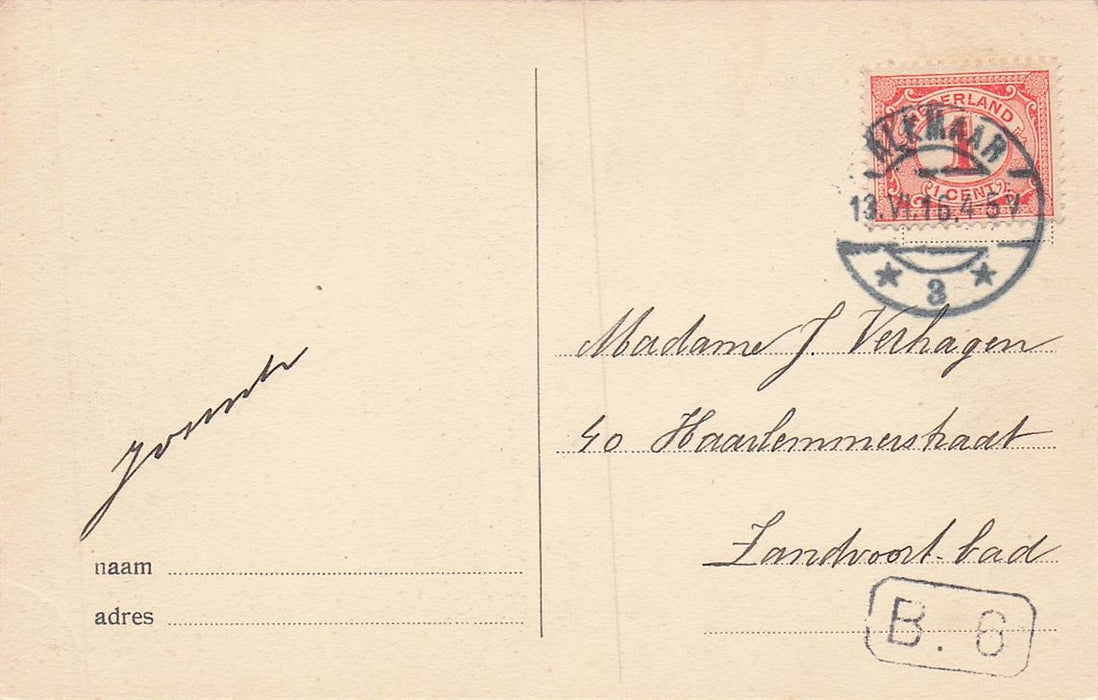 NEDERLAND
1
1 CENT
ALKMAAR
13.VI.16.4-5V
3
Madame J. Verhagen
40 Haarlemmerstraat
Zandvoort-bad
naam
adres
B. 6